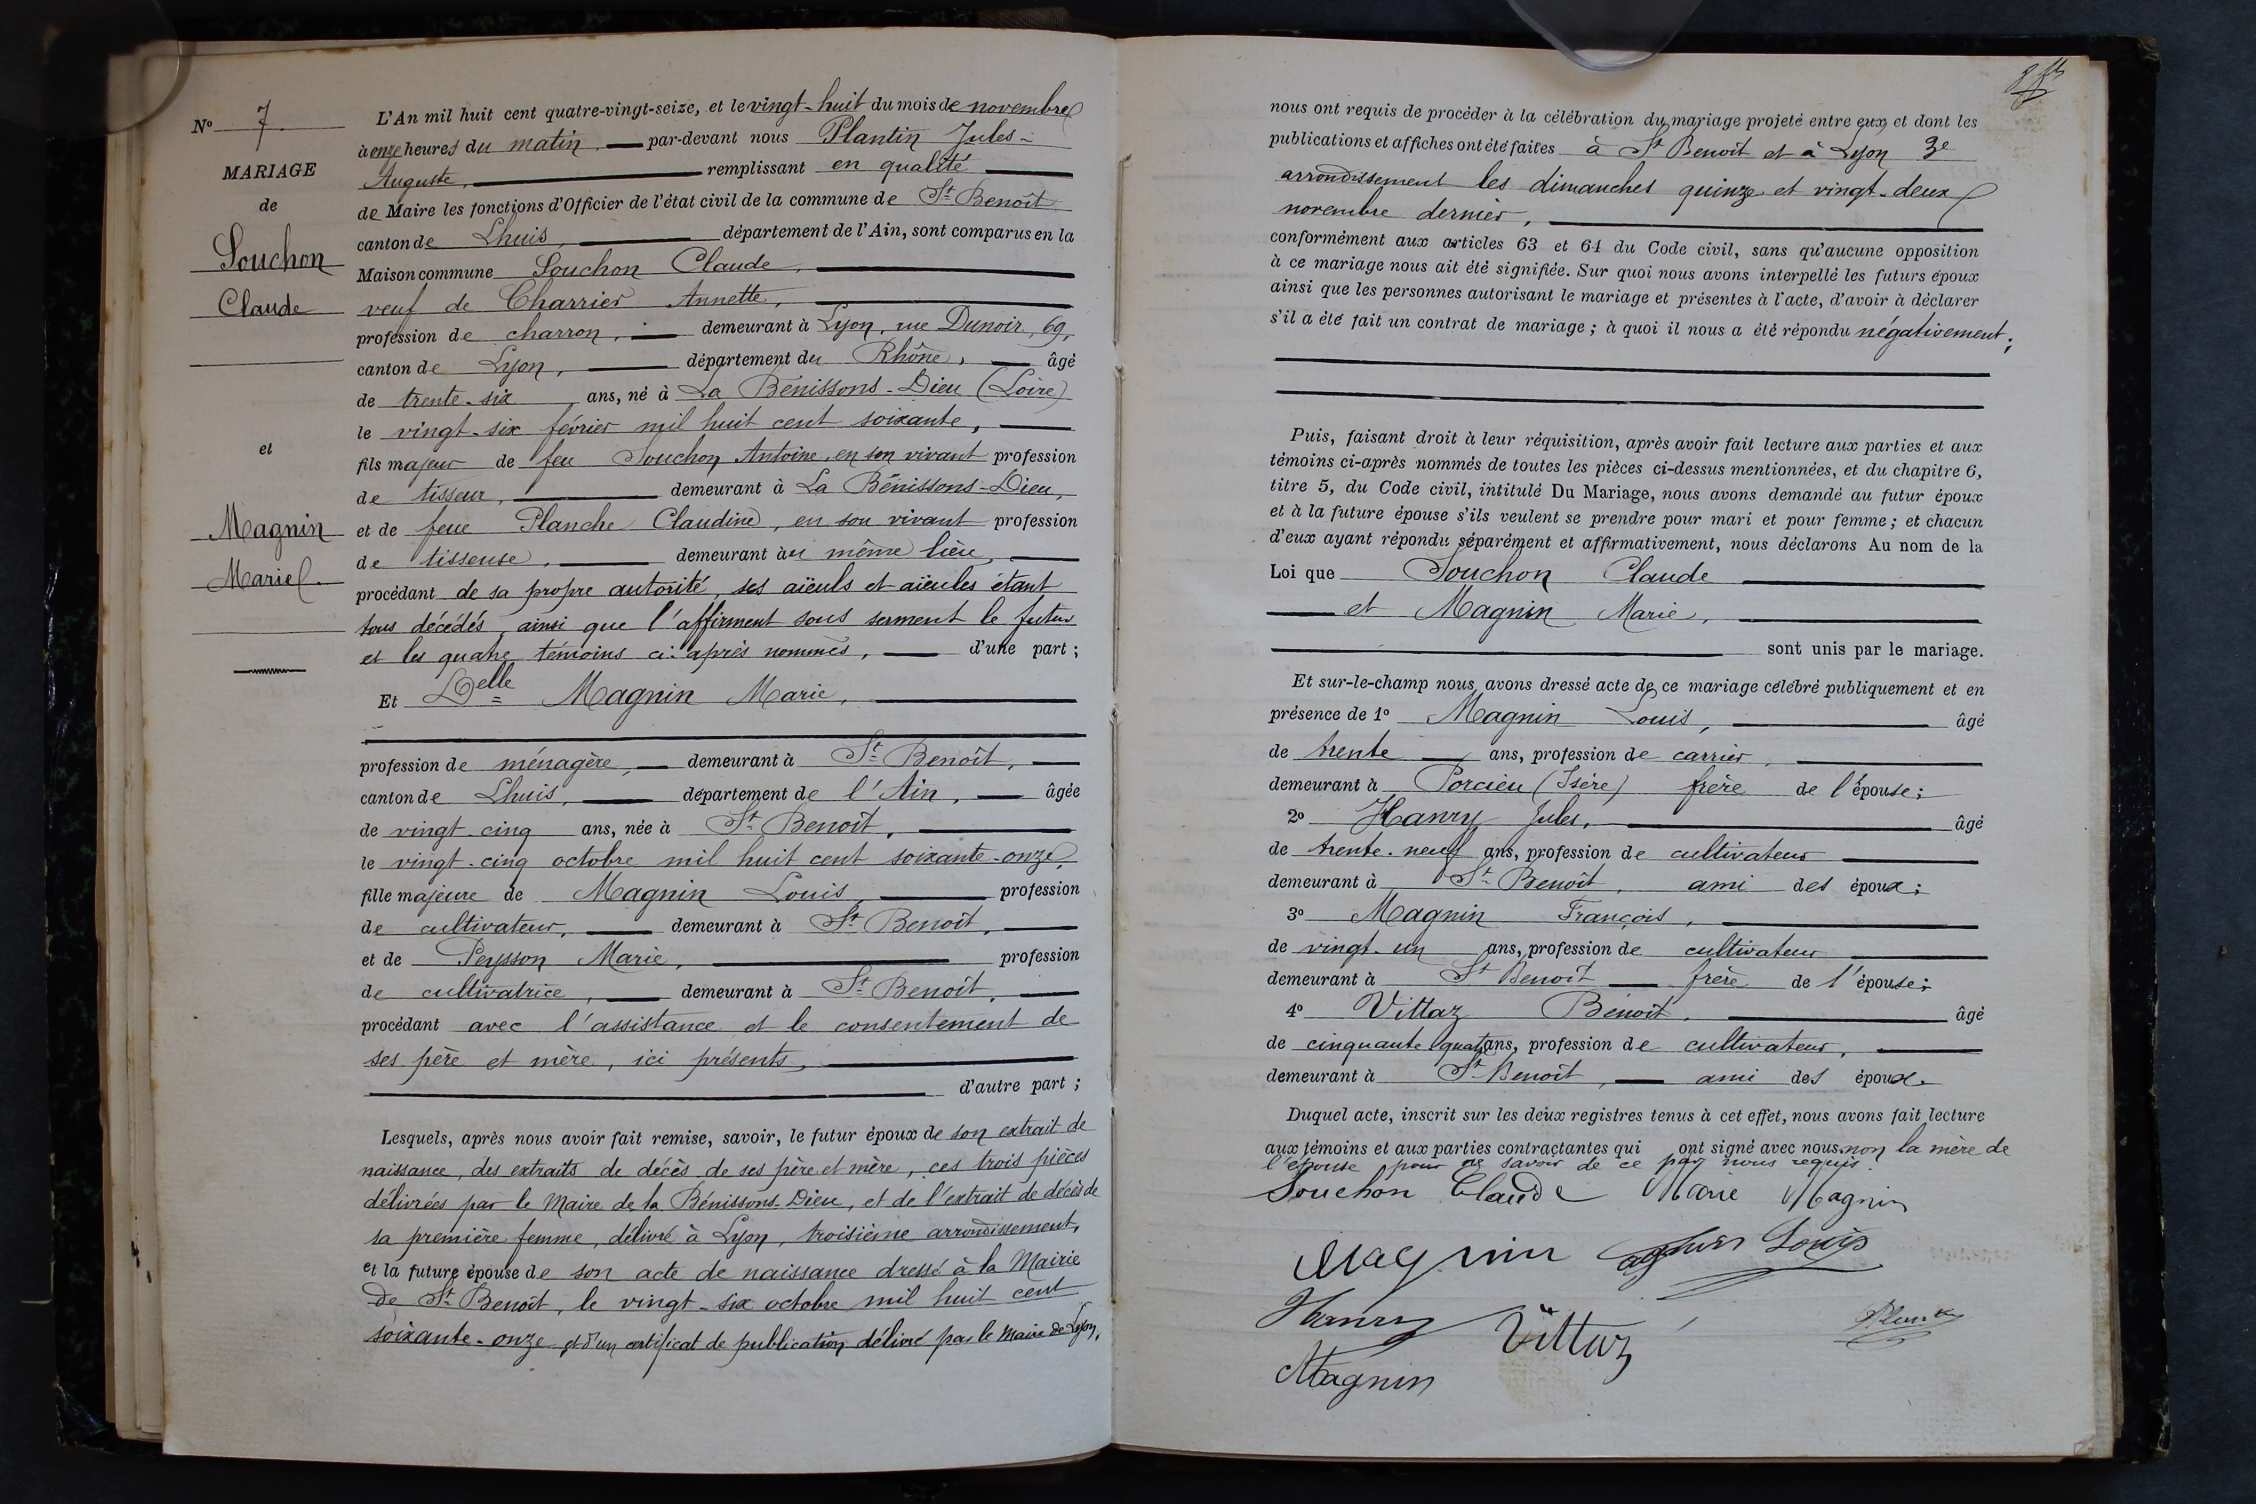 Nº 7
MARIAGE
de
Souchon
Claude
et
Magnin
Marie
L'An mil huit cent quatre-vingt-seize, et le vingt-huit du mois de novembre
à onze heures du matin, par-devant nous Plantin Jules-
Auguste, remplissant en qualité
de Maire les fonctions d'Officier de l'état civil de la commune de St Benoît
canton de Lhuis, département de l'Ain, sont comparus en la
Maison commune Souchon Claude,
veuf de Charrier Annette,
profession de charron, demeurant à Lyon, rue Dunoir, 69,
canton de Lyon, département du Rhône, âgé
de trente-six ans, né à La Bénissons-Dieu (Loire)
le vingt-six février mil huit cent soixante,
fils majeur de feu Souchon Antoine, en son vivant profession
de tisseur, demeurant à La Bénissons-Dieu,
et de feue Planche Claudine, en son vivant profession
de tisseuse, demeurant au même lieu,
procédant de sa propre autorité, ses aïeuls et aïeules étant
tous décédés, ainsi que l'affirment sous serment le futur
et les quatre témoins ci-après nommés, d'une part;
Et Delle Magnin Marie,
profession de ménagère, demeurant à St Benoît,
canton de Lhuis, département de l'Ain, âgée
de vingt-cinq ans, née à St Benoît,
le vingt-cinq octobre mil huit cent soixante-onze,
fille majeure de Magnin Louis, profession
de cultivateur, demeurant à St Benoît,
et de Peysson Marie, profession
de cultivatrice, demeurant à St Benoît,
procédant avec l'assistance et le consentement de
ses père et mère, ici présents,
d'autre part;
Lesquels, après nous avoir fait remise, savoir, le futur époux de son extrait de
naissance, des extraits de décès de ses père et mère, ces trois pièces
délivrées par le Maire de la Bénissons-Dieu, et de l'extrait de décès de
sa première femme, délivré à Lyon, troisième arrondissement,
et la future épouse de son acte de naissance dressé à la Mairie
de St Benoît, le vingt-six octobre mil huit cent
soixante-onze et d'un certificat de publication délivré par le Maire de Lyon,
nous ont requis de procéder à la célébration du mariage projeté entre eux, et dont les
publications et affiches ont été faites à St Benoît et à Lyon 3e
arrondissement les dimanches quinze et vingt-deux
novembre dernier,
conformément aux articles 63 et 64 du Code civil, sans qu'aucune opposition
à ce mariage nous ait été signifiée. Sur quoi nous avons interpellé les futurs époux
ainsi que les personnes autorisant le mariage et présentes à l'acte, d'avoir à déclarer
s'il a été fait un contrat de mariage; à quoi il nous a été répondu négativement;
Puis, faisant droit à leur réquisition, après avoir fait lecture aux parties et aux
témoins ci-après nommés de toutes les pièces ci-dessus mentionnées, et du chapitre 6,
titre 5, du Code civil, intitulé Du Mariage, nous avons demandé au futur époux
et à la future épouse s'ils veulent se prendre pour mari et pour femme; et chacun
d'eux ayant répondu séparément et affirmativement, nous déclarons Au nom de la
Loi que Souchon Claude
et Magnin Marie,
sont unis par le mariage.
Et sur-le-champ nous avons dressé acte de ce mariage célébré publiquement et en
présence de 1º Magnin Louis, âgé
de trente ans, profession de carrier,
demeurant à Porcieu (Isère) frère de l'épouse;
2º Hanry Jules, âgé
de trente-neuf ans, profession de cultivateur
demeurant à St Benoît, ami des époux;
3º Magnin François,
de vingt-un ans, profession de cultivateur
demeurant à St Benoît frère de l'épouse;
4º Vittaz Benoît, âgé
de cinquante quatre ans, profession de cultivateur,
demeurant à St Benoît, ami des époux.
Duquel acte, inscrit sur les deux registres tenus à cet effet, nous avons fait lecture
aux témoins et aux parties contractantes qui ont signé avec nous, non la mère de
l'épouse pour ne savoir de ce par nous requis.
Souchon Claude Marie Magnin
Magnin Magnin Louis
Hanry Vittaz
Magnin